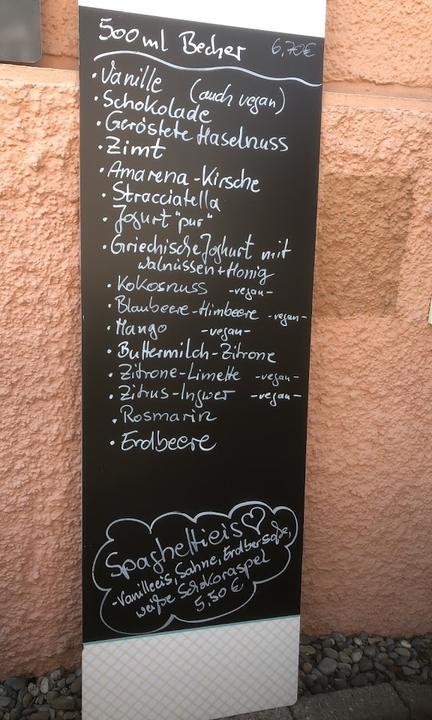 500ml Becher 6,70€
• Vanille
(auch vegan)
• Schokolade
• Geröstete Haselnuss
• Zimt
• Amarena-Kirsche
• Stracciatella
• Jogurt "pur"
• Griechische Joghurt mit
Walnüssen + Honig
• Kokosnuss -vegan-
• Blaubeere-Himbeere -vegan-
• Mango -vegan-
• Buttermilch-Zitrone
• Zitrone-Limette -vegan-
• Zitrus-Ingwer -vegan-
• Rosmarin
• Erdbeere
Spaghettieis♡
-Vanilleeis, Sahne, Erdbersoße,
weiße Schokoraspel
5,50 €